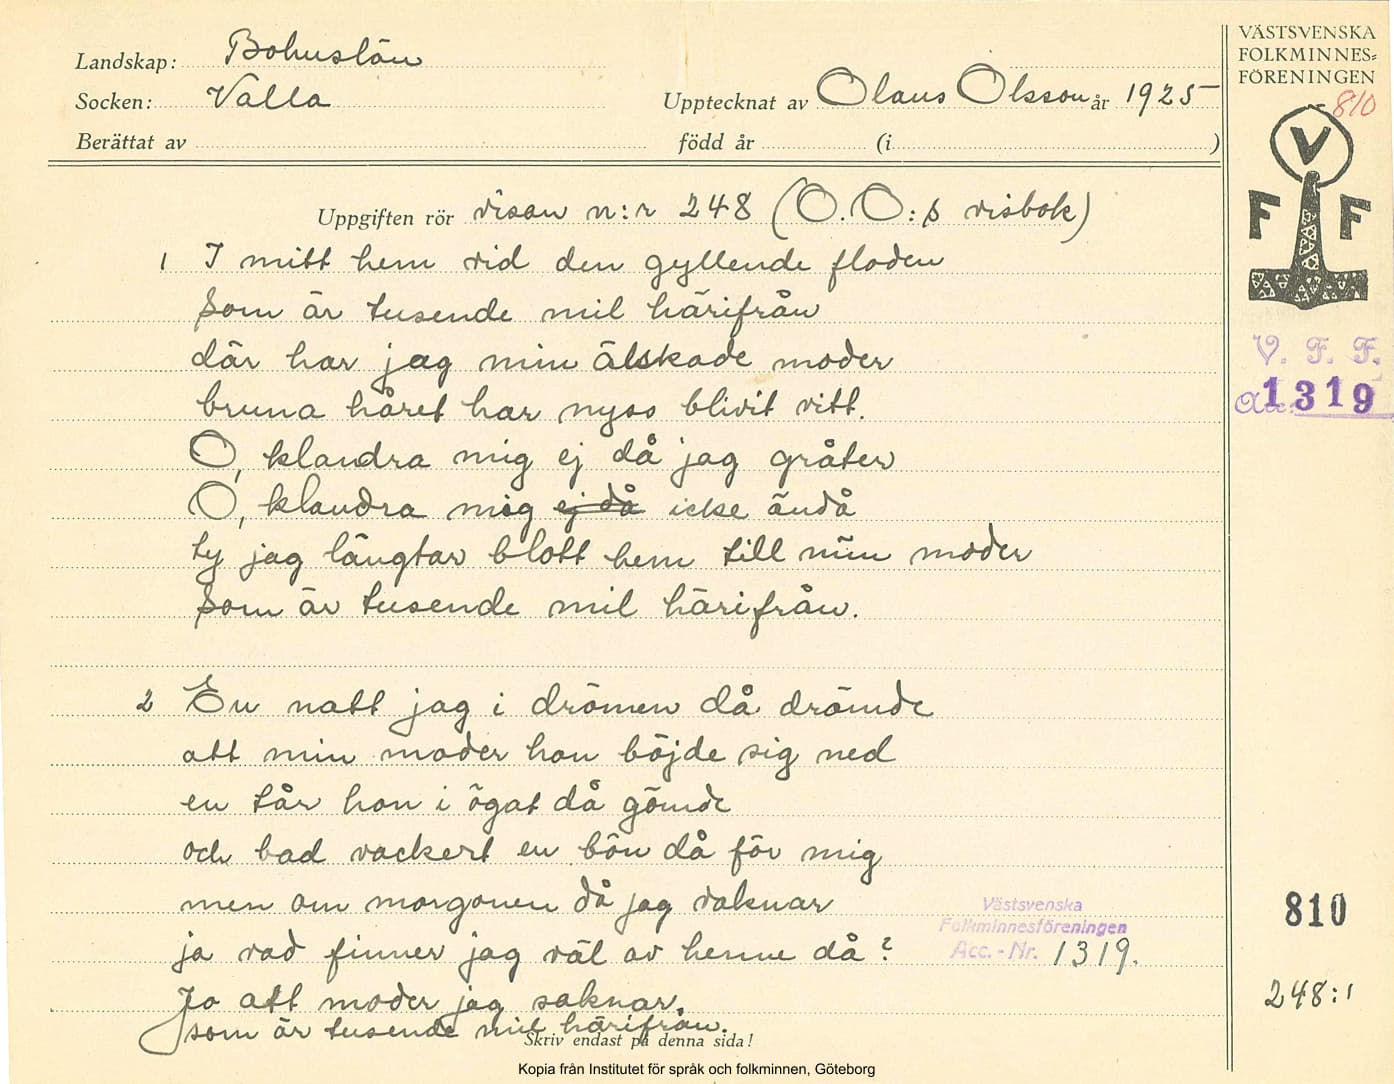 Landskap: Bohuslän
Socken: Valla
Upptecknat av Olaus Olsson år 1925
Berättat av
född år (i )
VÄSTSVENSKA
FOLKMINNES=
FÖRENINGEN
810
V
F F
V. F. F.
Acc. 1319
Uppgiften rör visan n:r 248 (O. O:s visbok)
1 I mitt hem vid den gyllende floden
som är tusende mil härifrån
där har jag min älskade moder
bruna håret har nyss blivit vitt.
O, klandra mig ej då jag gråter
O, klandra mig ej då icke ändå
ty jag längtar blott hem till min moder
som är tusende mil härifrån.
2 En natt jag i drömen då drömde
att min moder hon böjde sig ned
en tår hon i ögat då gömde
och bad vackert en bön då för mig
men om morgonen då jag vaknar
ja vad finner jag väl av henne då?
Jo att moder jag saknar.
som är tusende mil härifrån.
Västsvenska
Folkminnesföreningen
Acc. - Nr. 1319.
810
248:1
Skriv endast på denna sida!
Kopia från Institutet för språk och folkminnen, Göteborg